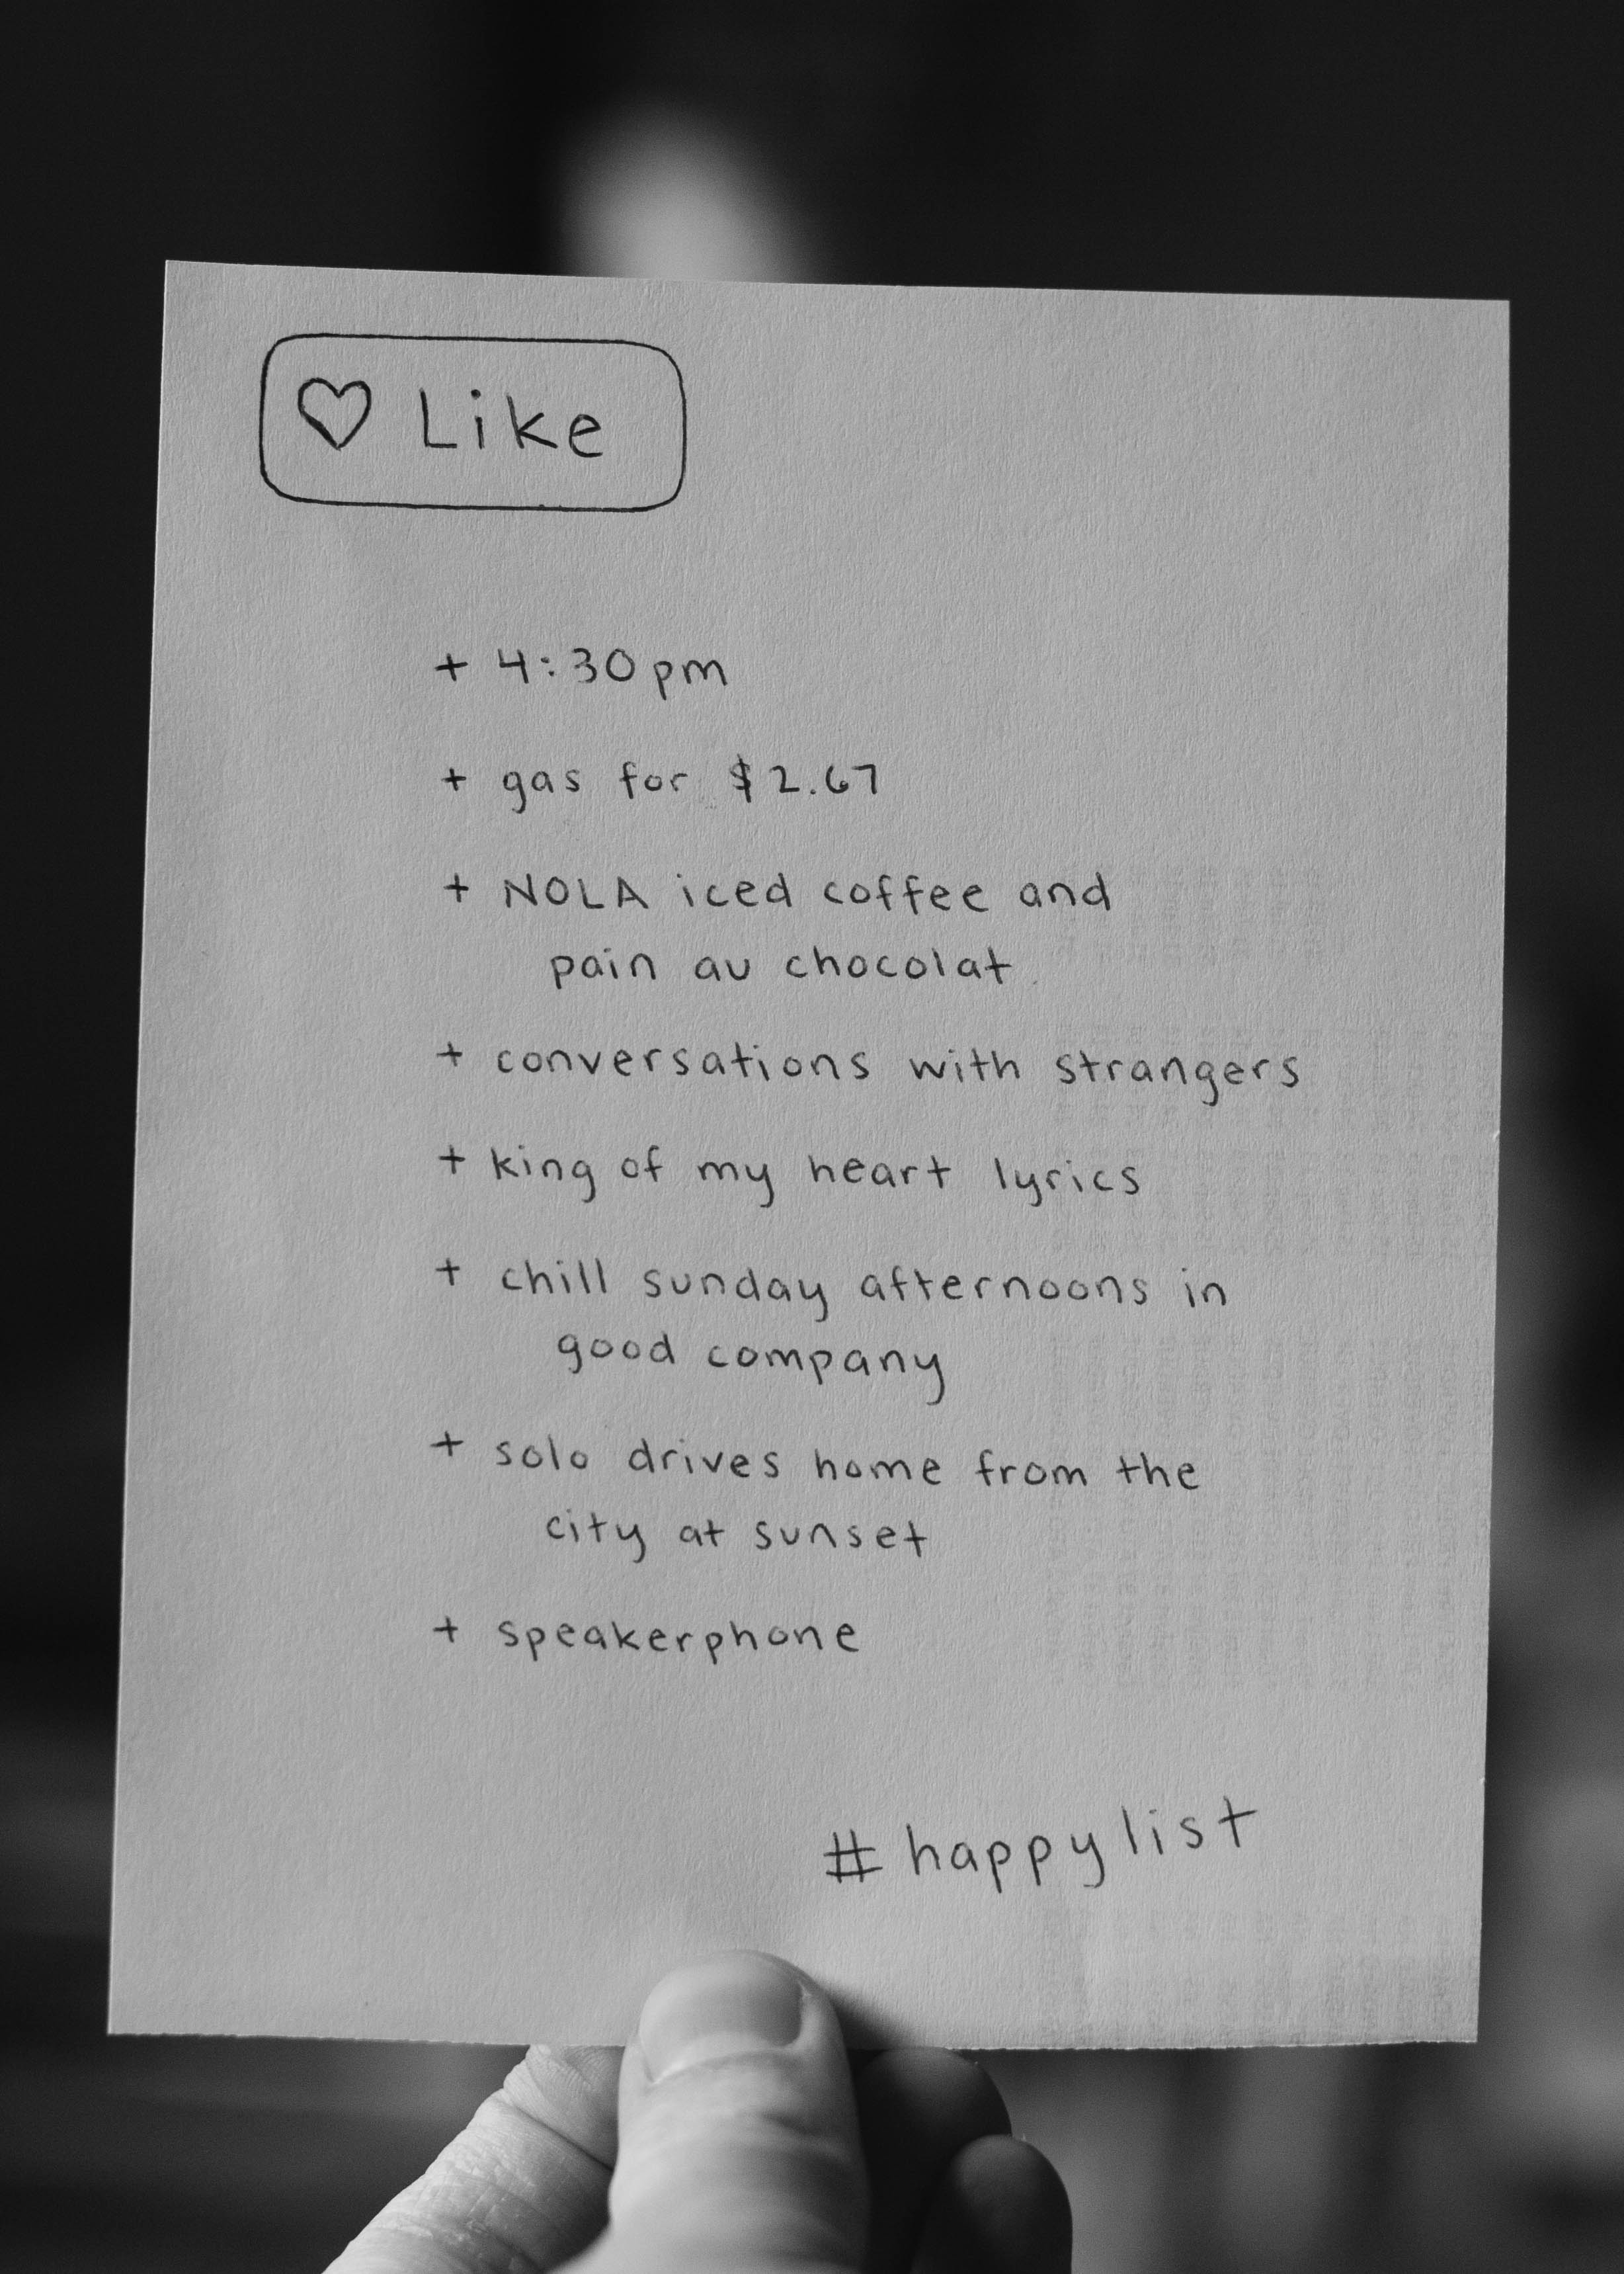 ♡ Like
+ 4:30pm
+ gas for $2.67
+ NOLA iced coffee and
pain au chocolat
+ conversations with strangers
+ king of my heart lyrics
+ chill sunday afternoons in
good company
+ solo drives home from the
city at sunset
+ speakerphone
#happylist